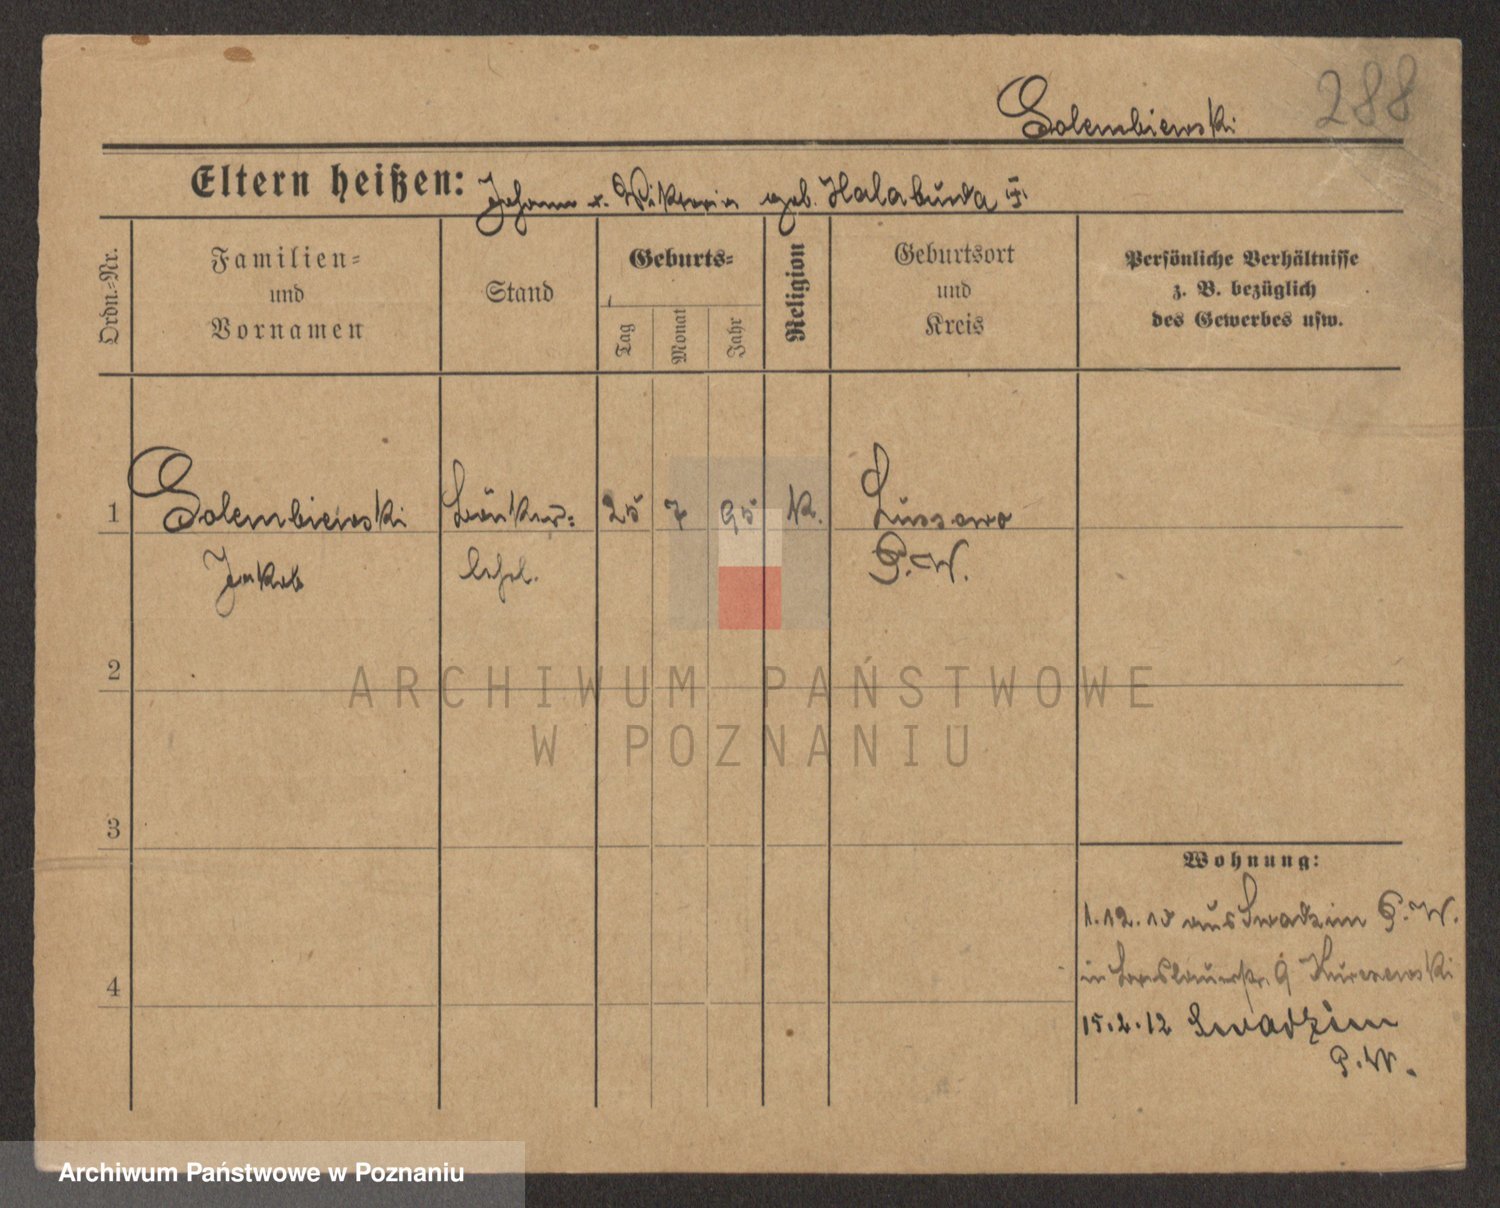 288
Golembiewski
Eltern heißen: Johann u. Viktoria geb. Halabuda
Ordn.-Nr.
Familien-
und
Vornamen
Stand
Geburts-
Tag
Monat
Jahr
Religion
Geburtsort
und
Kreis
Persönliche Verhältnisse
z. B. bezüglich
des Gewerbes usw.
1 Golembiewski 25 7 95 k. Lussowo
Jakob lehrl. P. W.
2
ARCHIWUM PAŃSTWOWE
W POZNANIU
3
Wohnung:
1.12.10 aus Swadzim P. W.
in Breslauerstr. 9
4
15.2.12 Swadzim
P. W.
Archiwum Państwowe w Poznaniu